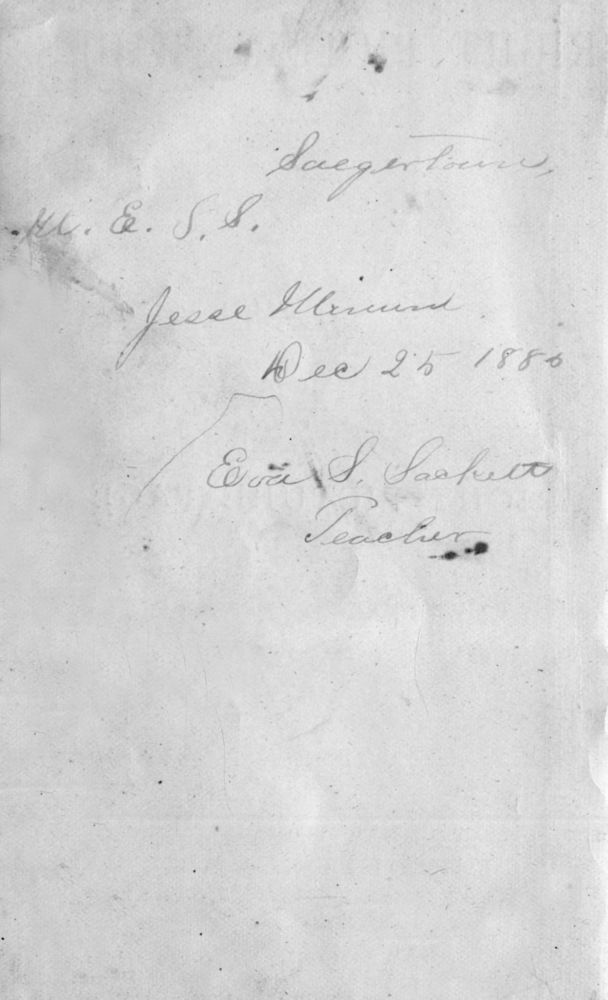 Saegertown,
M. E. S. S.
Jesse
Dec 25 188
Eva S. Sackett
Teacher